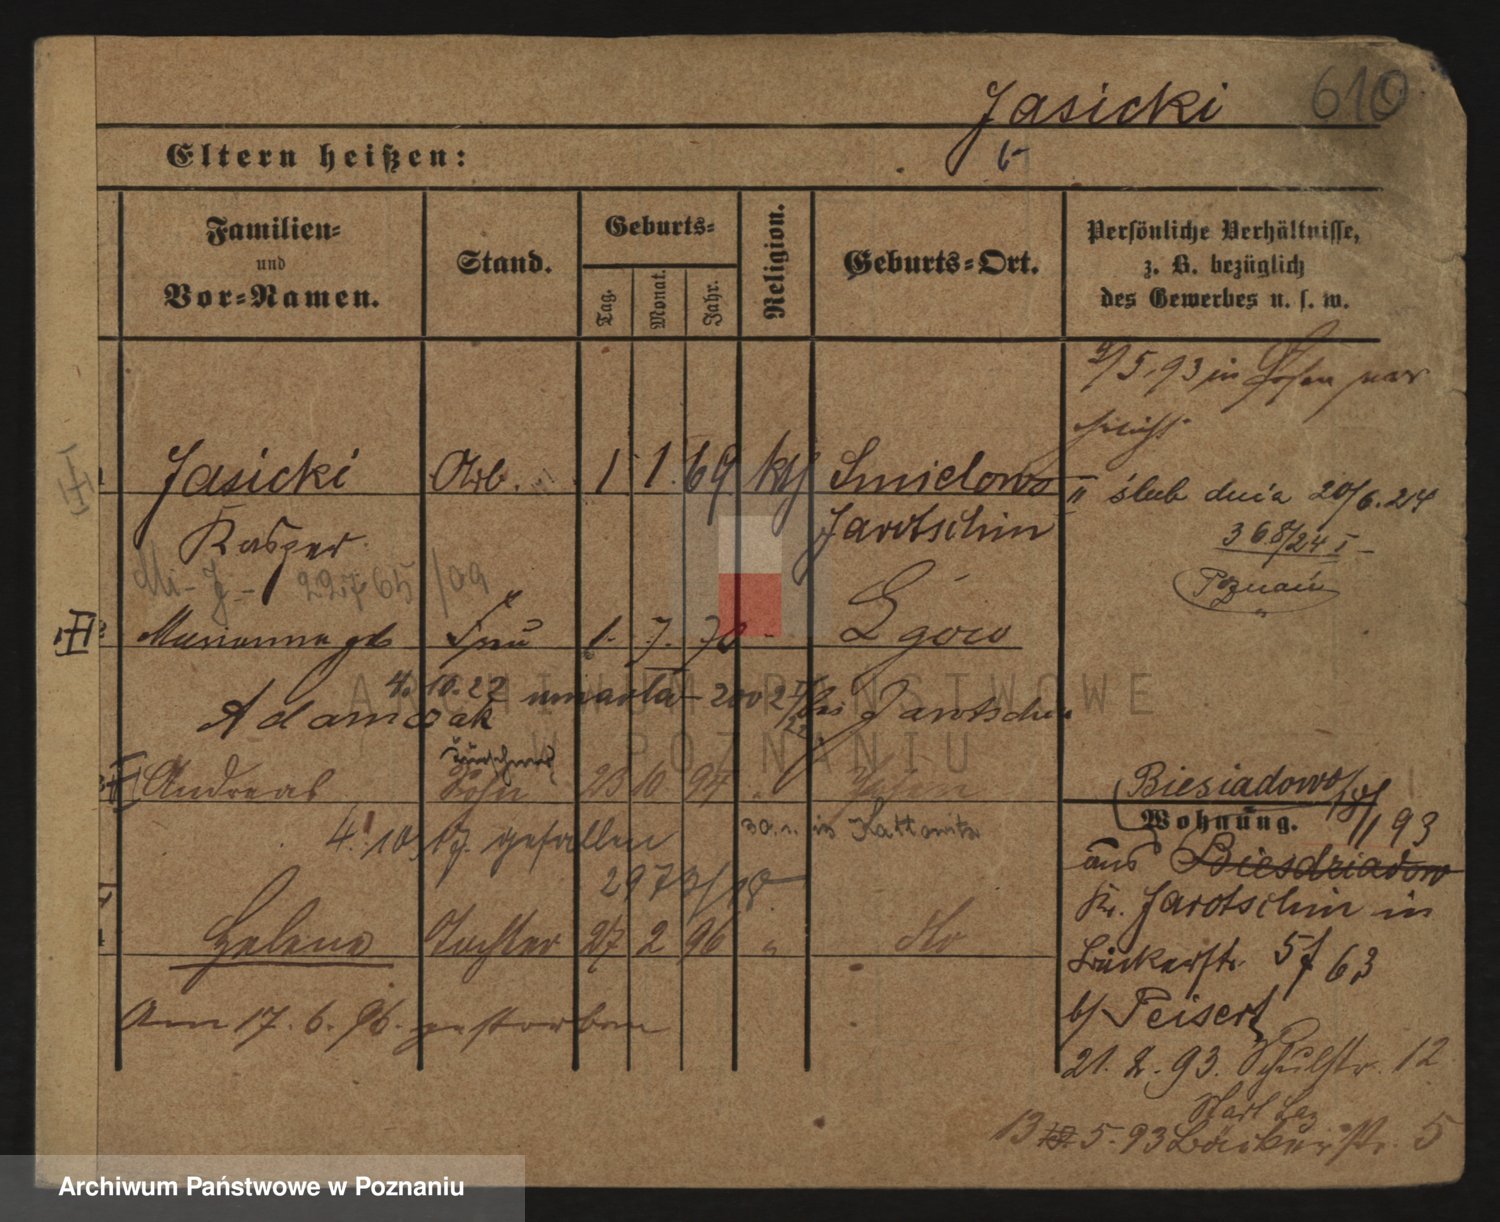 610
Jasicki
Eltern heißen:
Familien-
und
Vor-Namen.
Stand.
Geburts-
Tag.
Monat.
Jahr.
Religion.
Geburts-Ort.
Persönliche Verhältnisse,
z. B. bezüglich
des Gewerbes u. s. w.
9/5.93 in Posen war
Jasicki Arb. 1 1. 69 kth Smielowo
II ślub dnia 20/6.24
Kasper Jarotschin
368/24 I
Poznań
22765/09
Marianna geb Frau 1. 7. 70 Lgów
4. 10. 22 umarła 2002
Adamczak Jarotschin
Andreas Sohn 23 10 94 " Posen
Biesiadowo
Wohnung.
11/93
4. 10. 17. gefallen
30. in Kattowitz
2973/18
aus Biesdziadow
Kr. Jarotschin in
Helene Tochter 27 2 96 " do
Bäckerstr. 5 63
b/ Peisert
Am 17. 6. 96. gestorben
21. 2. 93. Schulstr. 12
13 5. 93 Bäckerstr. 5
ARCHIWUM PAŃSTWOWE
W POZNANIU
Archiwum Państwowe w Poznaniu